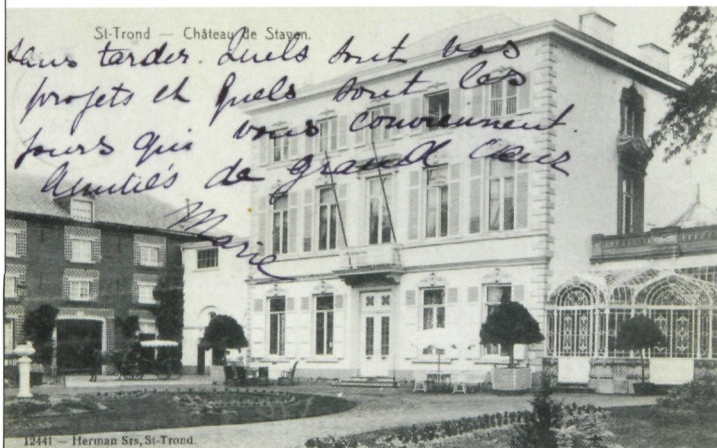 St-Trond — Château de Stayen.
sans tarder. Quels sont vos
projets et quels sont les
jours qui vous conviennent.
Amitiés de grand cœur
Marie
12441 — Herman Srs, St-Trond.